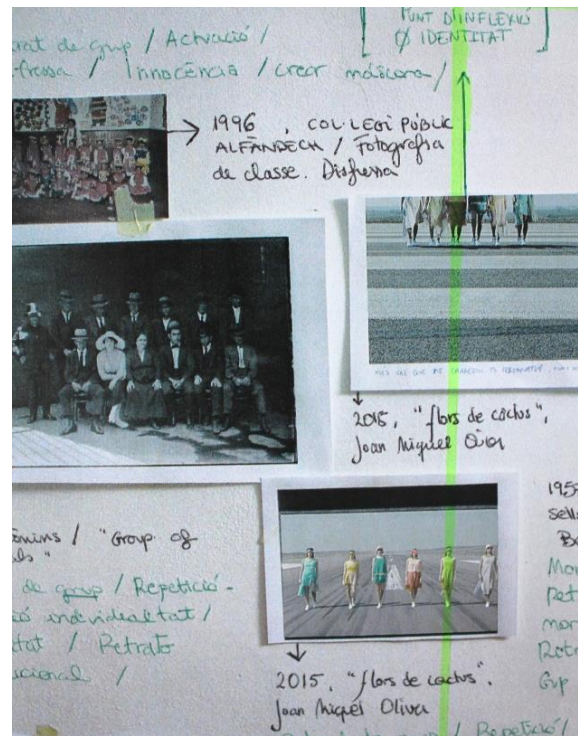 PUNT D'INFLEXIÓ
Ø IDENTITAT
rat de grup / Actuació /
/ Innocència / crear màscara /
1996, COL·LEGI PÚBLIC
ALFÀNDECH / Fotografia
de classe. Disfressa
2015, "flors de càctus",
Joan Miquel Oliver
/ "Group of
de grup / Repetició -
ió individualtat /
tat / Retrato
ucional /
2015, "flors de cactus".
Joan Miquel Oliver
195
sell
Bo
Mor
pet
mor
Retr
Grup
/ Repetició /